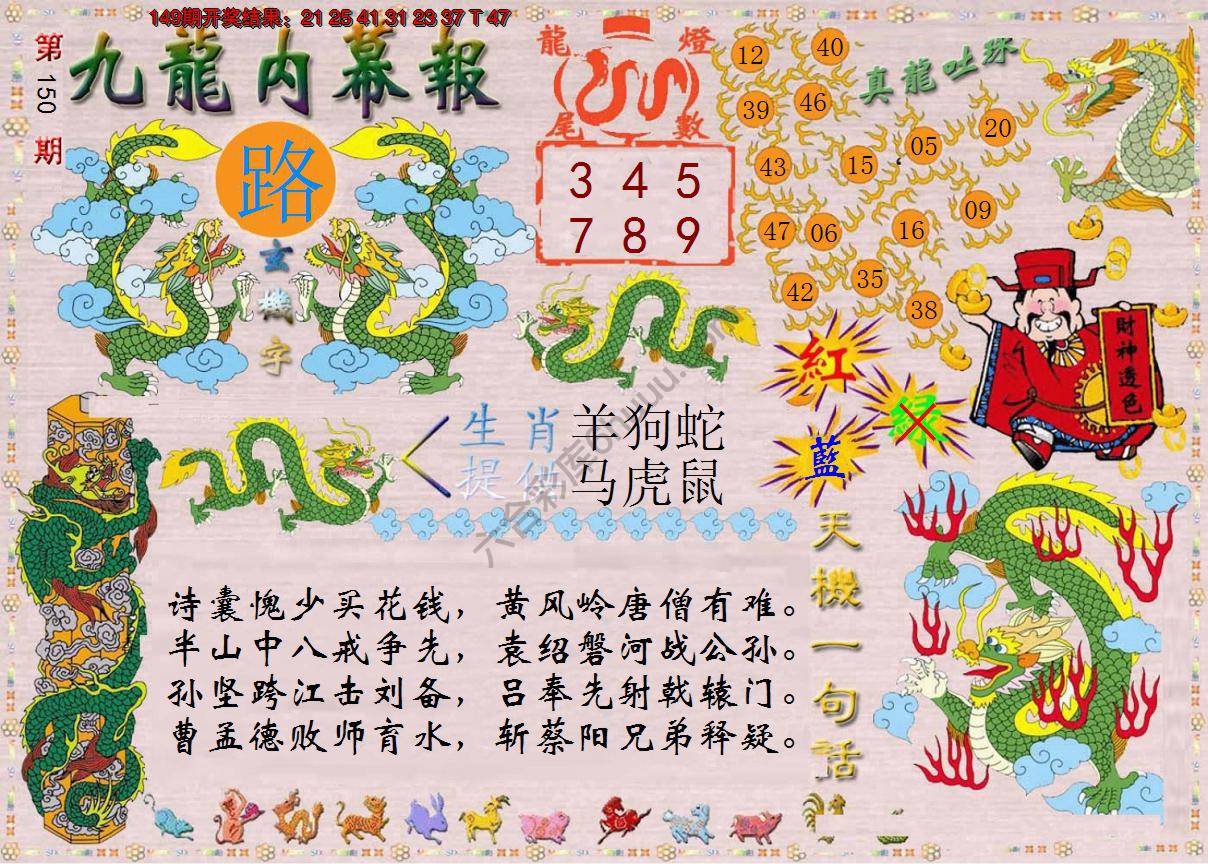 149期开奖结果：21 25 41 31 23 37 T 47
第150期
九龍内幕報
路
玄機字
龍燈
尾數
3 4 5
7 8 9
真龍吐珠
12 40
39 46
43 15 05 20
47 06 16 09
42 35 38
財神透色
紅
綠
藍
生肖 羊狗蛇
提供 马虎鼠
天機一句話
诗囊愧少买花钱，黄风岭唐僧有难。
半山中八戒争先，袁绍磐河战公孙。
孙坚跨江击刘备，吕奉先射戟辕门。
曹孟德败师育水，斩蔡阳兄弟释疑。